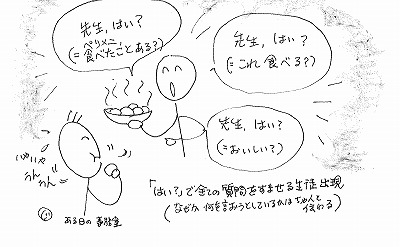 先生, はい?
(= ペリメニ
食べたことある?)
先生, はい?
(= これ 食べる?)
先生, はい?
(= おいしい?)
いやいや
うんうん
「はい?」で全ての質問をすませる生徒出現
(なぜか 何を言おうとしているかは ちゃんと伝わる)
ある日の